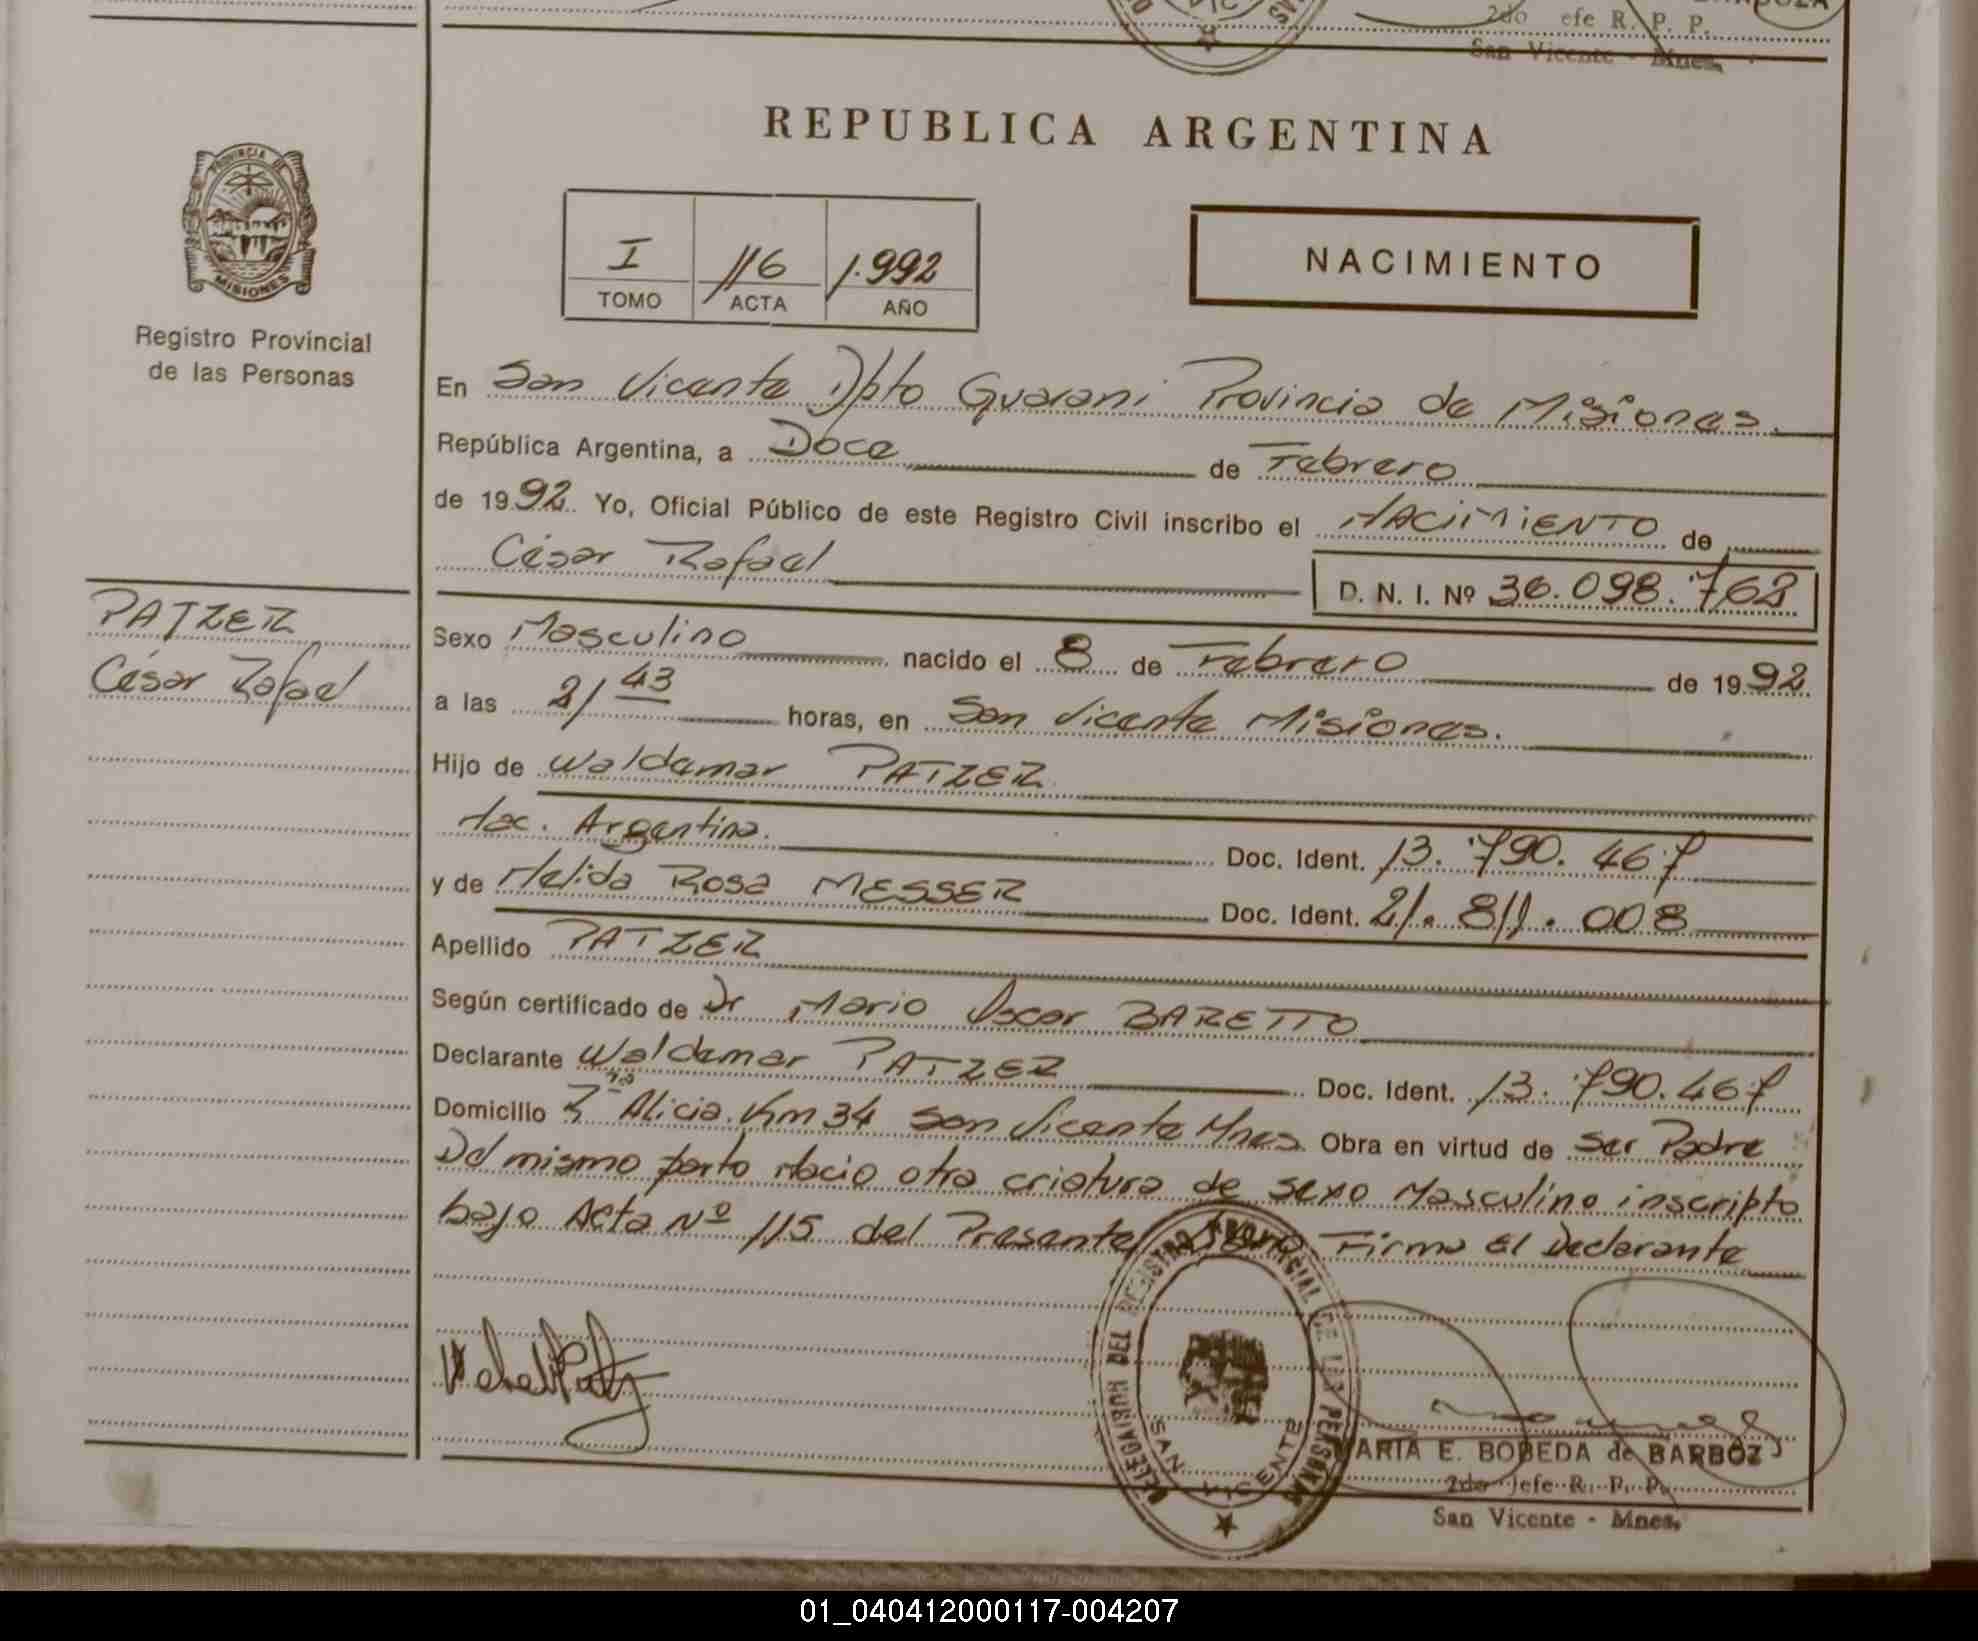 2do efe R. P. P.
San Vicente - Mnes.
REPUBLICA ARGENTINA
PROVINCIA DE
MISIONES
Registro Provincial
de las Personas
I 116 1.992
TOMO ACTA AÑO
NACIMIENTO
En San Vicente Dpto Guarani Provincia de Misiones.
República Argentina, a Doce de Febrero
de 1992. Yo, Oficial Público de este Registro Civil inscribo el NACIMIENTO de
César Rafael D. N. I. Nº 36.098.763
PATZER
César Rafael
Sexo Masculino nacido el 8 de Febrero de 1992
a las 21 43 horas, en San Vicente Misiones.
Hijo de Waldemar PATZER
Nac. Argentina. Doc. Ident. 13.790.467
y de Nelida Rosa MESSER Doc. Ident. 21.811.008
Apellido PATZER
Según certificado de Dr Mario Oscar BARETTO
Declarante Waldemar PATZER Doc. Ident. 13.790.467
Domicilio Alicia. Km 34 San Vicente Mnes Obra en virtud de Ser Padre
Del mismo parto Nacio otra criatura de sexo Masculino inscripto
bajo Acta Nº 115 del Presente Firma El Declarante
DELEGACION DEL REGISTRO PROVINCIAL DE LAS PERSONAS
SAN VICENTE
MARIA E. BOBEDA de BARBOZ
2do Jefe R. P. P.
San Vicente - Mnes.
01_040412000117-004207